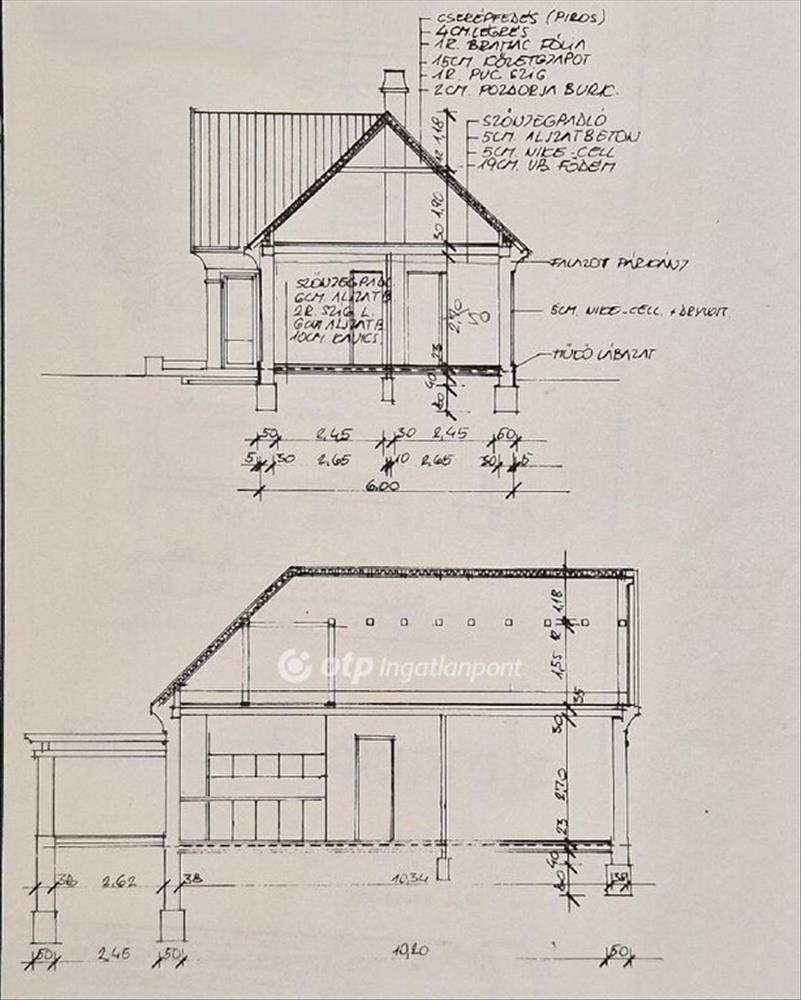 CSERÉPFEDÉS (PIROS)
4CM. LÉGRÉS
1R. BRAMAC FÓLIA
15CM. KŐZETGYAPOT
1R. PVC SZIG.
2CM. POZDORJA BURK.
SZŐNYEGPADLÓ
5CM. ALJZATBETON
5CM. NIKE-CELL
19CM. VB. FÖDÉM
1,18
12
1,90
30
FALAZOTT PÁRKÁNY
SZŐNYEGPADL.
6CM. ALJZATB.
2R. SZIG. L.
6CM ALJZATB.
10CM. KAVICS.
2,70
5CM. NIKE-CELL + DRYVIT.
23
MŰKŐ LÁBAZAT
40
80
50 2,45 30 2,45 50
5 30 2.65 10 2.65 30 5
6.00
1,18
12
1,55
otp Ingatlanpont
35
30
2.70
23
40
80
38 2.62 38 10,34 38
50 2,45 50 10,20 50